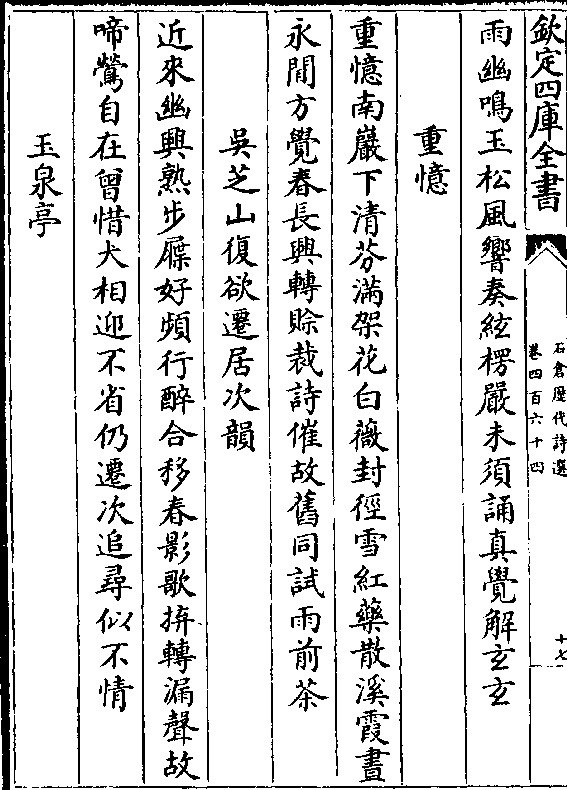 欽定四庫全書
石倉歴代詩選
卷四百六十四
十七
雨幽鳴玉松風響奏絃楞嚴未須誦真覺解玄玄
重憶
重憶南巖下清芬滿架花白薇封徑雪紅藥散溪霞晝
永閒方覺春長興轉賒裁詩催故舊同試雨前茶
吳芝山復欲遷居次韻
近來幽興熟步屧好頻行醉合移春影歌拚轉漏聲故
啼鶯自在曾惜犬相迎不省仍遷次追尋似不情
玉泉亭